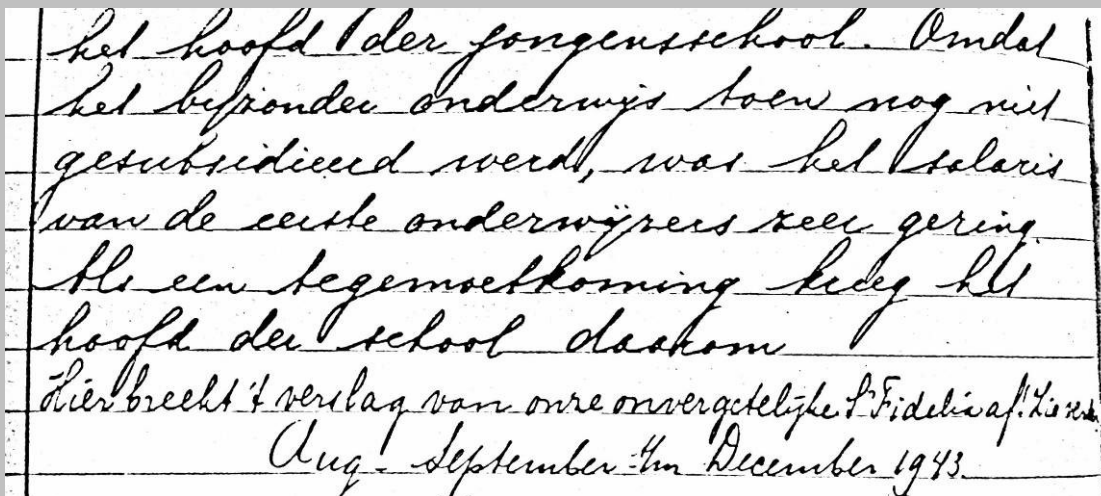 het hoofd der jongensschool. Omdat
het byzonder onderwijs toen nog niet
gesubsidieerd werd, was het salaris
van de eerste onderwijzers zeer gering.
Als een tegemoetkoming kreeg het
hoofd der school daarom
Hier breekt 't verslag van onze onvergetelijke Sr Fidelia af! Zie
Aug. September t/m December 1943